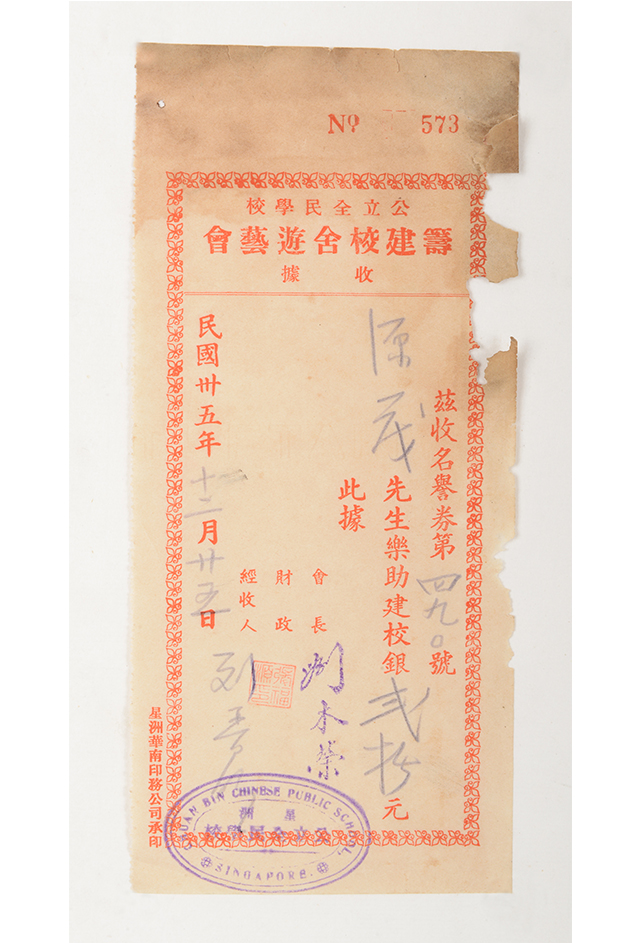 Nº 573
公立全民學校
籌建校舍遊藝會
收據
茲收名譽券第四九〇號
源茂先生樂助建校銀弍拾元
此據
會長
財政
經收人
民國卅五年十二月廿五日
星洲華南印務公司承印
CHUAN BIN CHINESE PUBLIC SCHOOL,
星洲
公立全民學校
SINGAPORE.